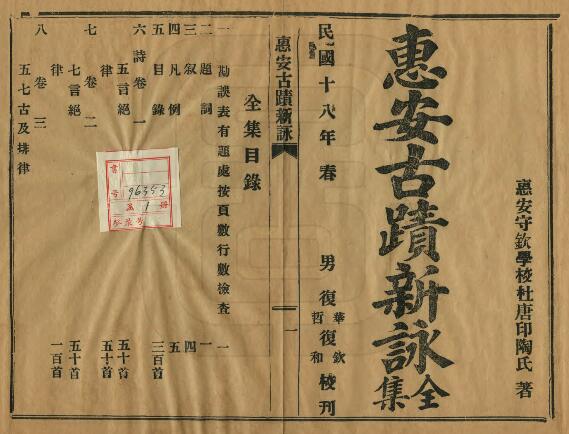 惠安守欽學校杜唐印陶氏 著
惠安古蹟新詠全集
民國十八年春 男 復哲 復和 華 欽 校刊
惠安古蹟新詠 一
全集目錄
一 勘誤表有題處按頁數行數檢查 一
二 題詞 一
三 叙 四
四 凡例 五
五 目錄 三百首
六 詩卷一 五言絕 五十首
律 五十首
七 卷二 七言絕 五十首
律 一百首
八 卷三 五七古及排律
書
號 96353
五 1 冊